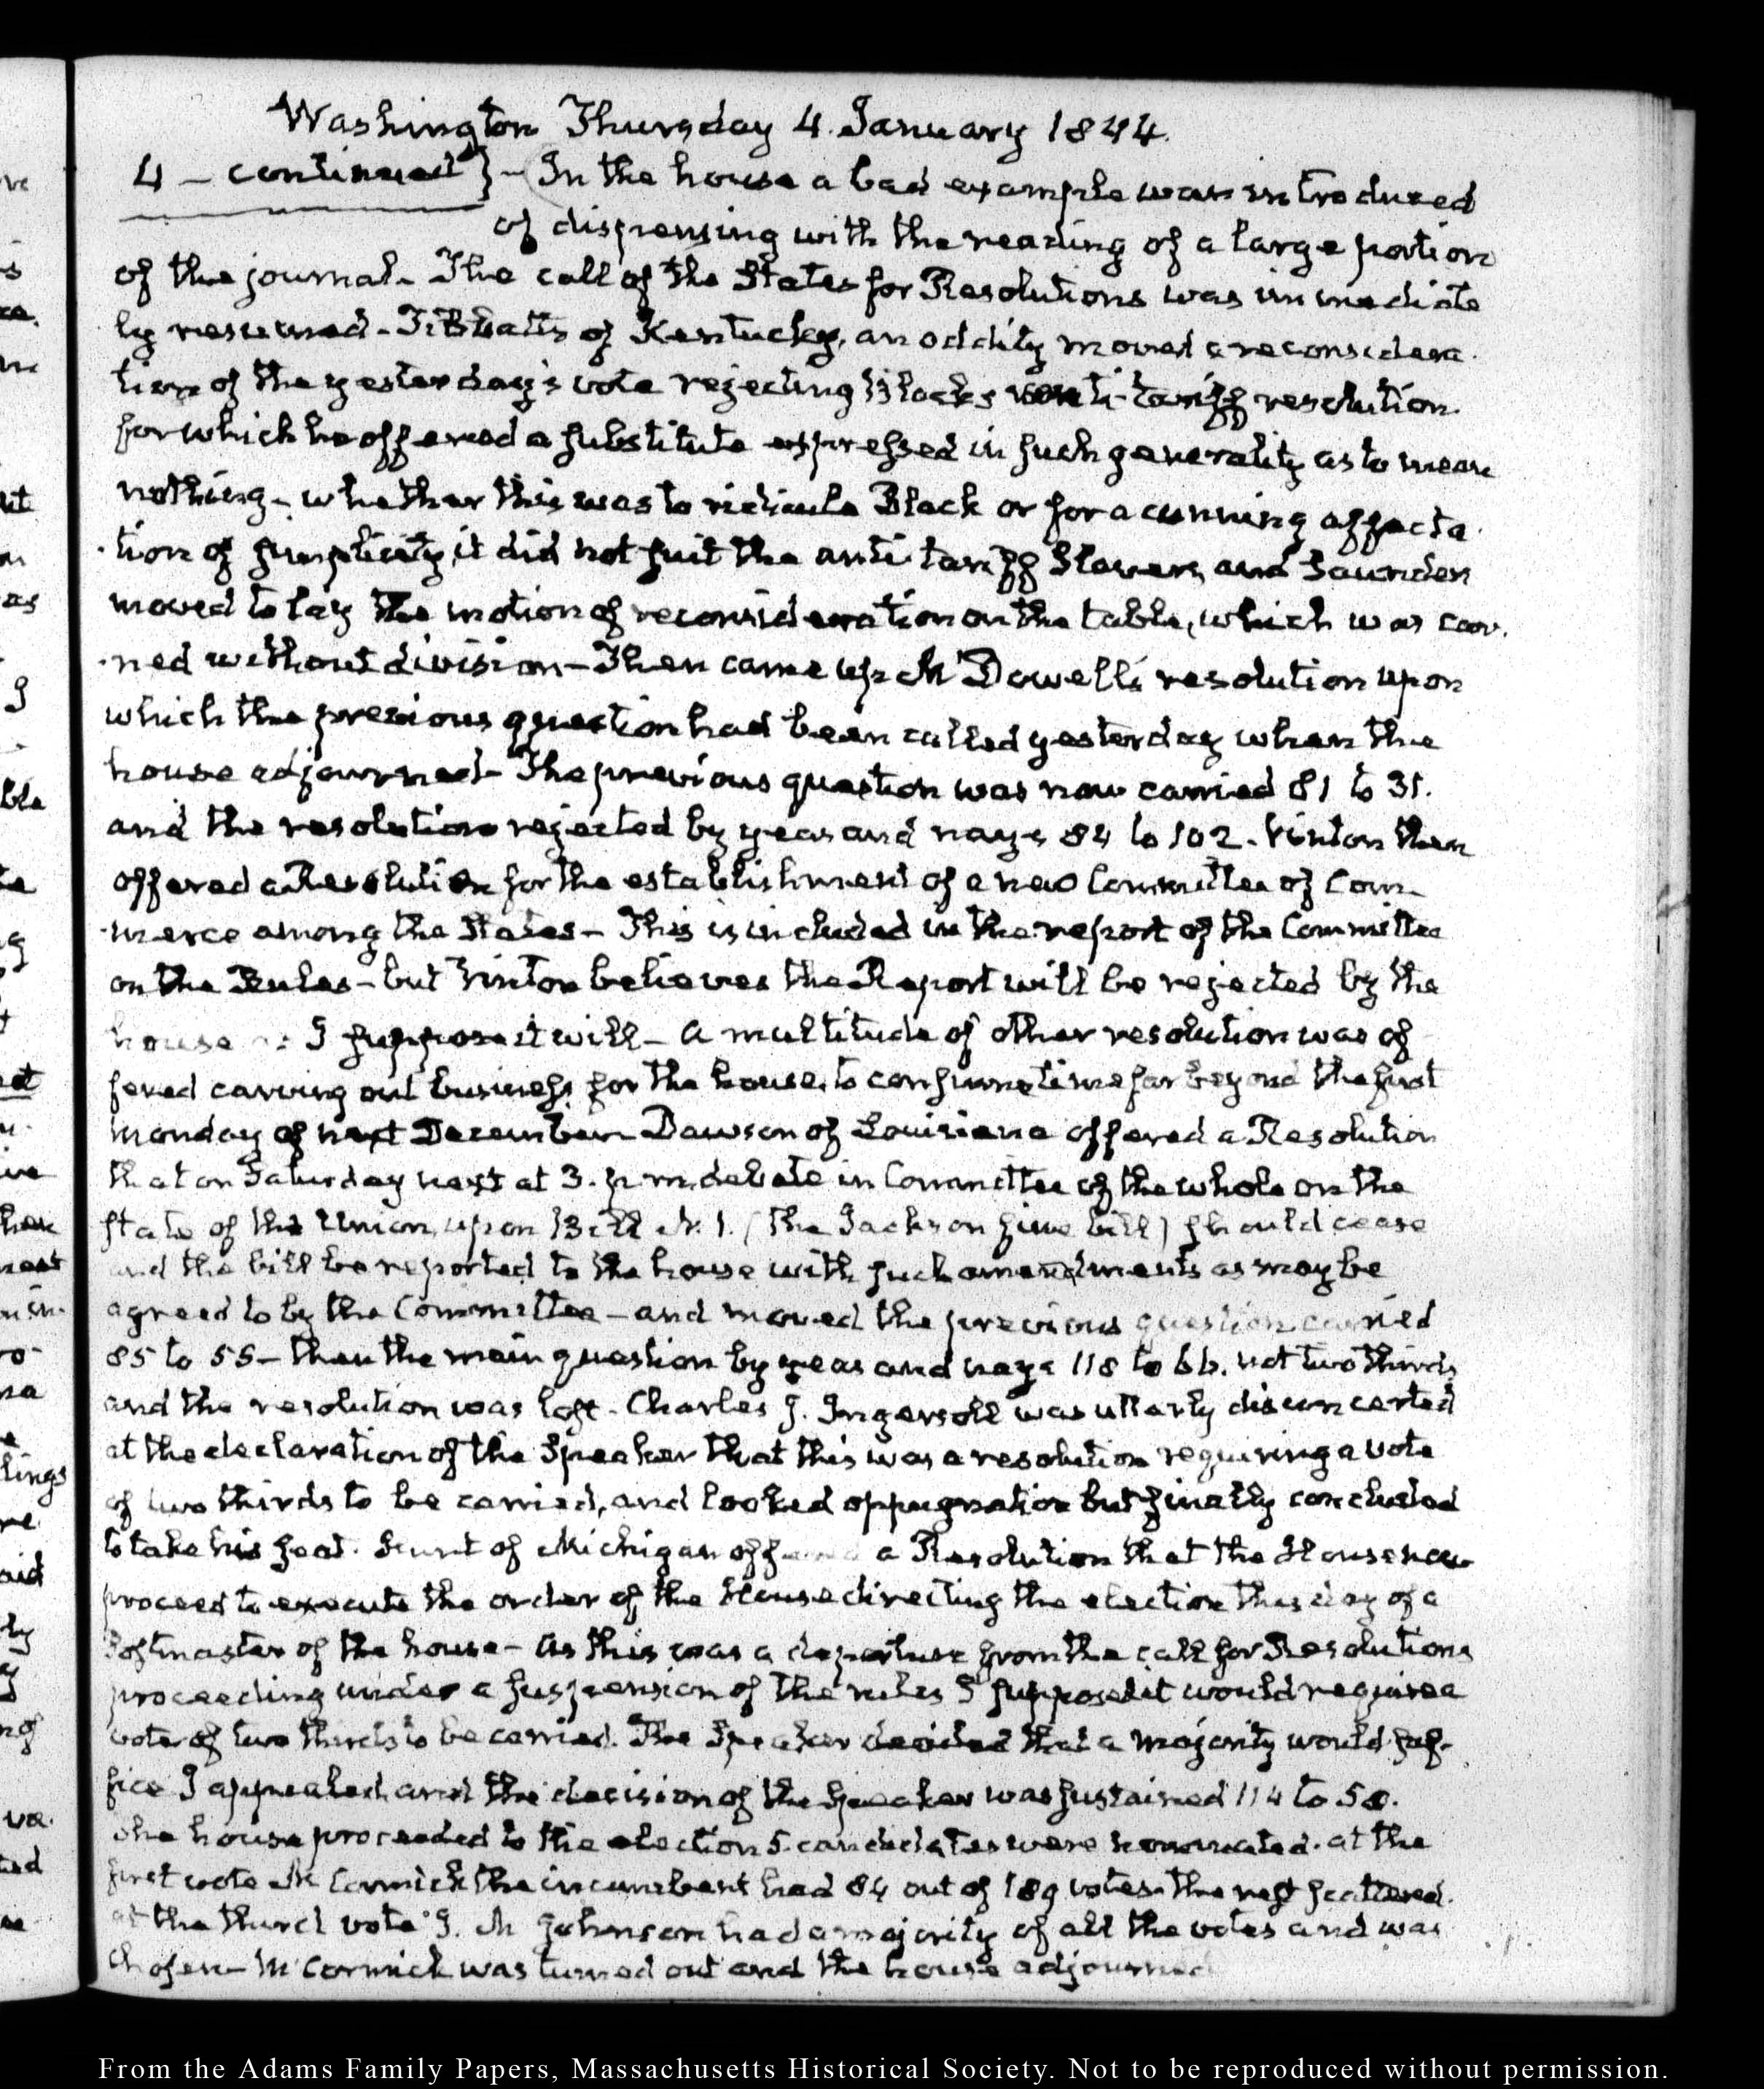 Washington Thursday 4. January 1844.
4 – continued } – In the house a bad example was introduced
of dispensing with the reading of a large portion
of the journal – The call of the States for Resolutions was immediate
ly resumed – Tibbatts of Kentucky, an oddity moved a reconsidera
tion of the yesterday's vote rejecting Black's anti-tariff resolution
for which he offered a substitute expressed in such generality as to mean
nothing – whether this was to ridicule Black or for a cunning affecta
tion of simplicity, it did not suit the anti tariff Slavers, and Saunders
moved to lay the motion of reconsideration on the table, which was car
ried without division – Then came up McDowell's resolution upon
which the previous question had been called yesterday when the
house adjourned – The previous question was now carried 81 to 31.
and the resolution rejected by yeas and nays 84 to 102. Vinton then
offered a Resolution for the establishment of a new Committee of Com
merce among the States – This is included in the report of the Committee
on the Rules – but Vinton believes the Report will be rejected by the
house I suppose it will – A multitude of other resolution was of
fered carving out business for the house, to consume time far beyond the first
Monday of next December – Dawson of Louisiana offered a Resolution
that on Saturday next at 3. p.m. debate in Committee of the whole on the
State of the Union, upon Bill N. 1. (The Jackson fine bill) should cease
and the bill be reported to the house with such amendments as may be
agreed to by the Committee – and moved the previous question carried
85 to 55 – then the main question by yeas and nays 118 to 66. not two thirds
and the resolution was lost – Charles J. Ingersoll was utterly disconcerted
at the declaration of the Speaker that this was a resolution requiring a vote
of two thirds to be carried, and looked oppugnation but finally concluded
to take his seat. Hunt of Michigan offered a Resolution that the House now
proceed to execute the order of the House directing the election this day of a
Postmaster of the house – As this was a departure from the call for Resolutions
proceeding under a suspension of the rules I supposed it would require a
vote of two thirds to be carried. The Speaker decided that a majority would suf-
fice I appealed and the decision of the Speaker was sustained 114 to 50.
The house proceeded to the election 5. candidates were nominated. at the
first vote McCormick the incumbent had 84 out of 189 votes. the rest scattered.
at the third vote J. M Johnson had a majority of all the votes and was
chosen – McCormick was turned out and the house adjourned
From the Adams Family Papers, Massachusetts Historical Society. Not to be reproduced without permission.